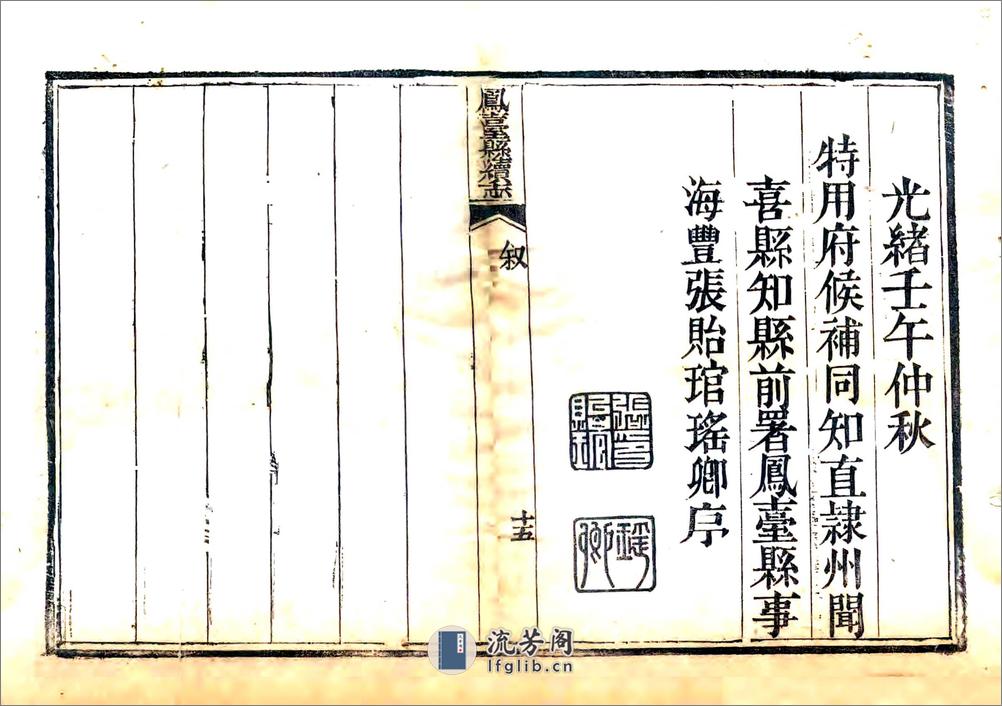 光緒壬午仲秋
特用府候補同知直隸州聞
喜縣知縣前署鳳臺縣事
海豐張貽琯瑤卿序
鳳臺縣續志
叙
十五
流芳阁
lfglib.cn